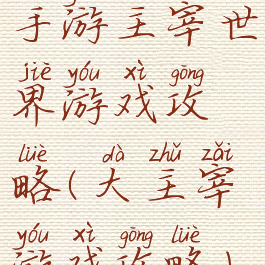 手游主宰世
jiè yóu xì gōng
界游戏攻
lüè dà zhǔ zǎi
略(大主宰
yóu xì gōng lüè
游戏攻略)